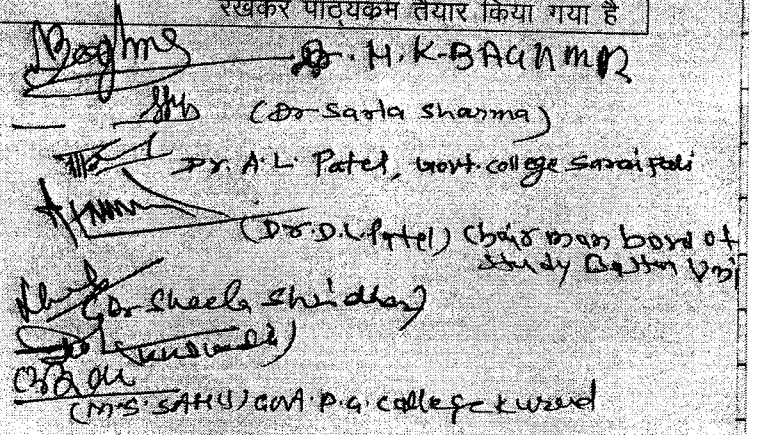 रखकर पाठ्यक्रम तैयार किया गया है
Dr. H. K. BAGHMAR
(Dr Sarla Sharma)
Dr. A. L. Patel, Govt. college Saraipali
(Dr. D. L. Patel) Chairman bord of
study Baster Uni
(Dr Sheela Shridhar)
(M. S. SAHU) Govt. P. G. college Kurud